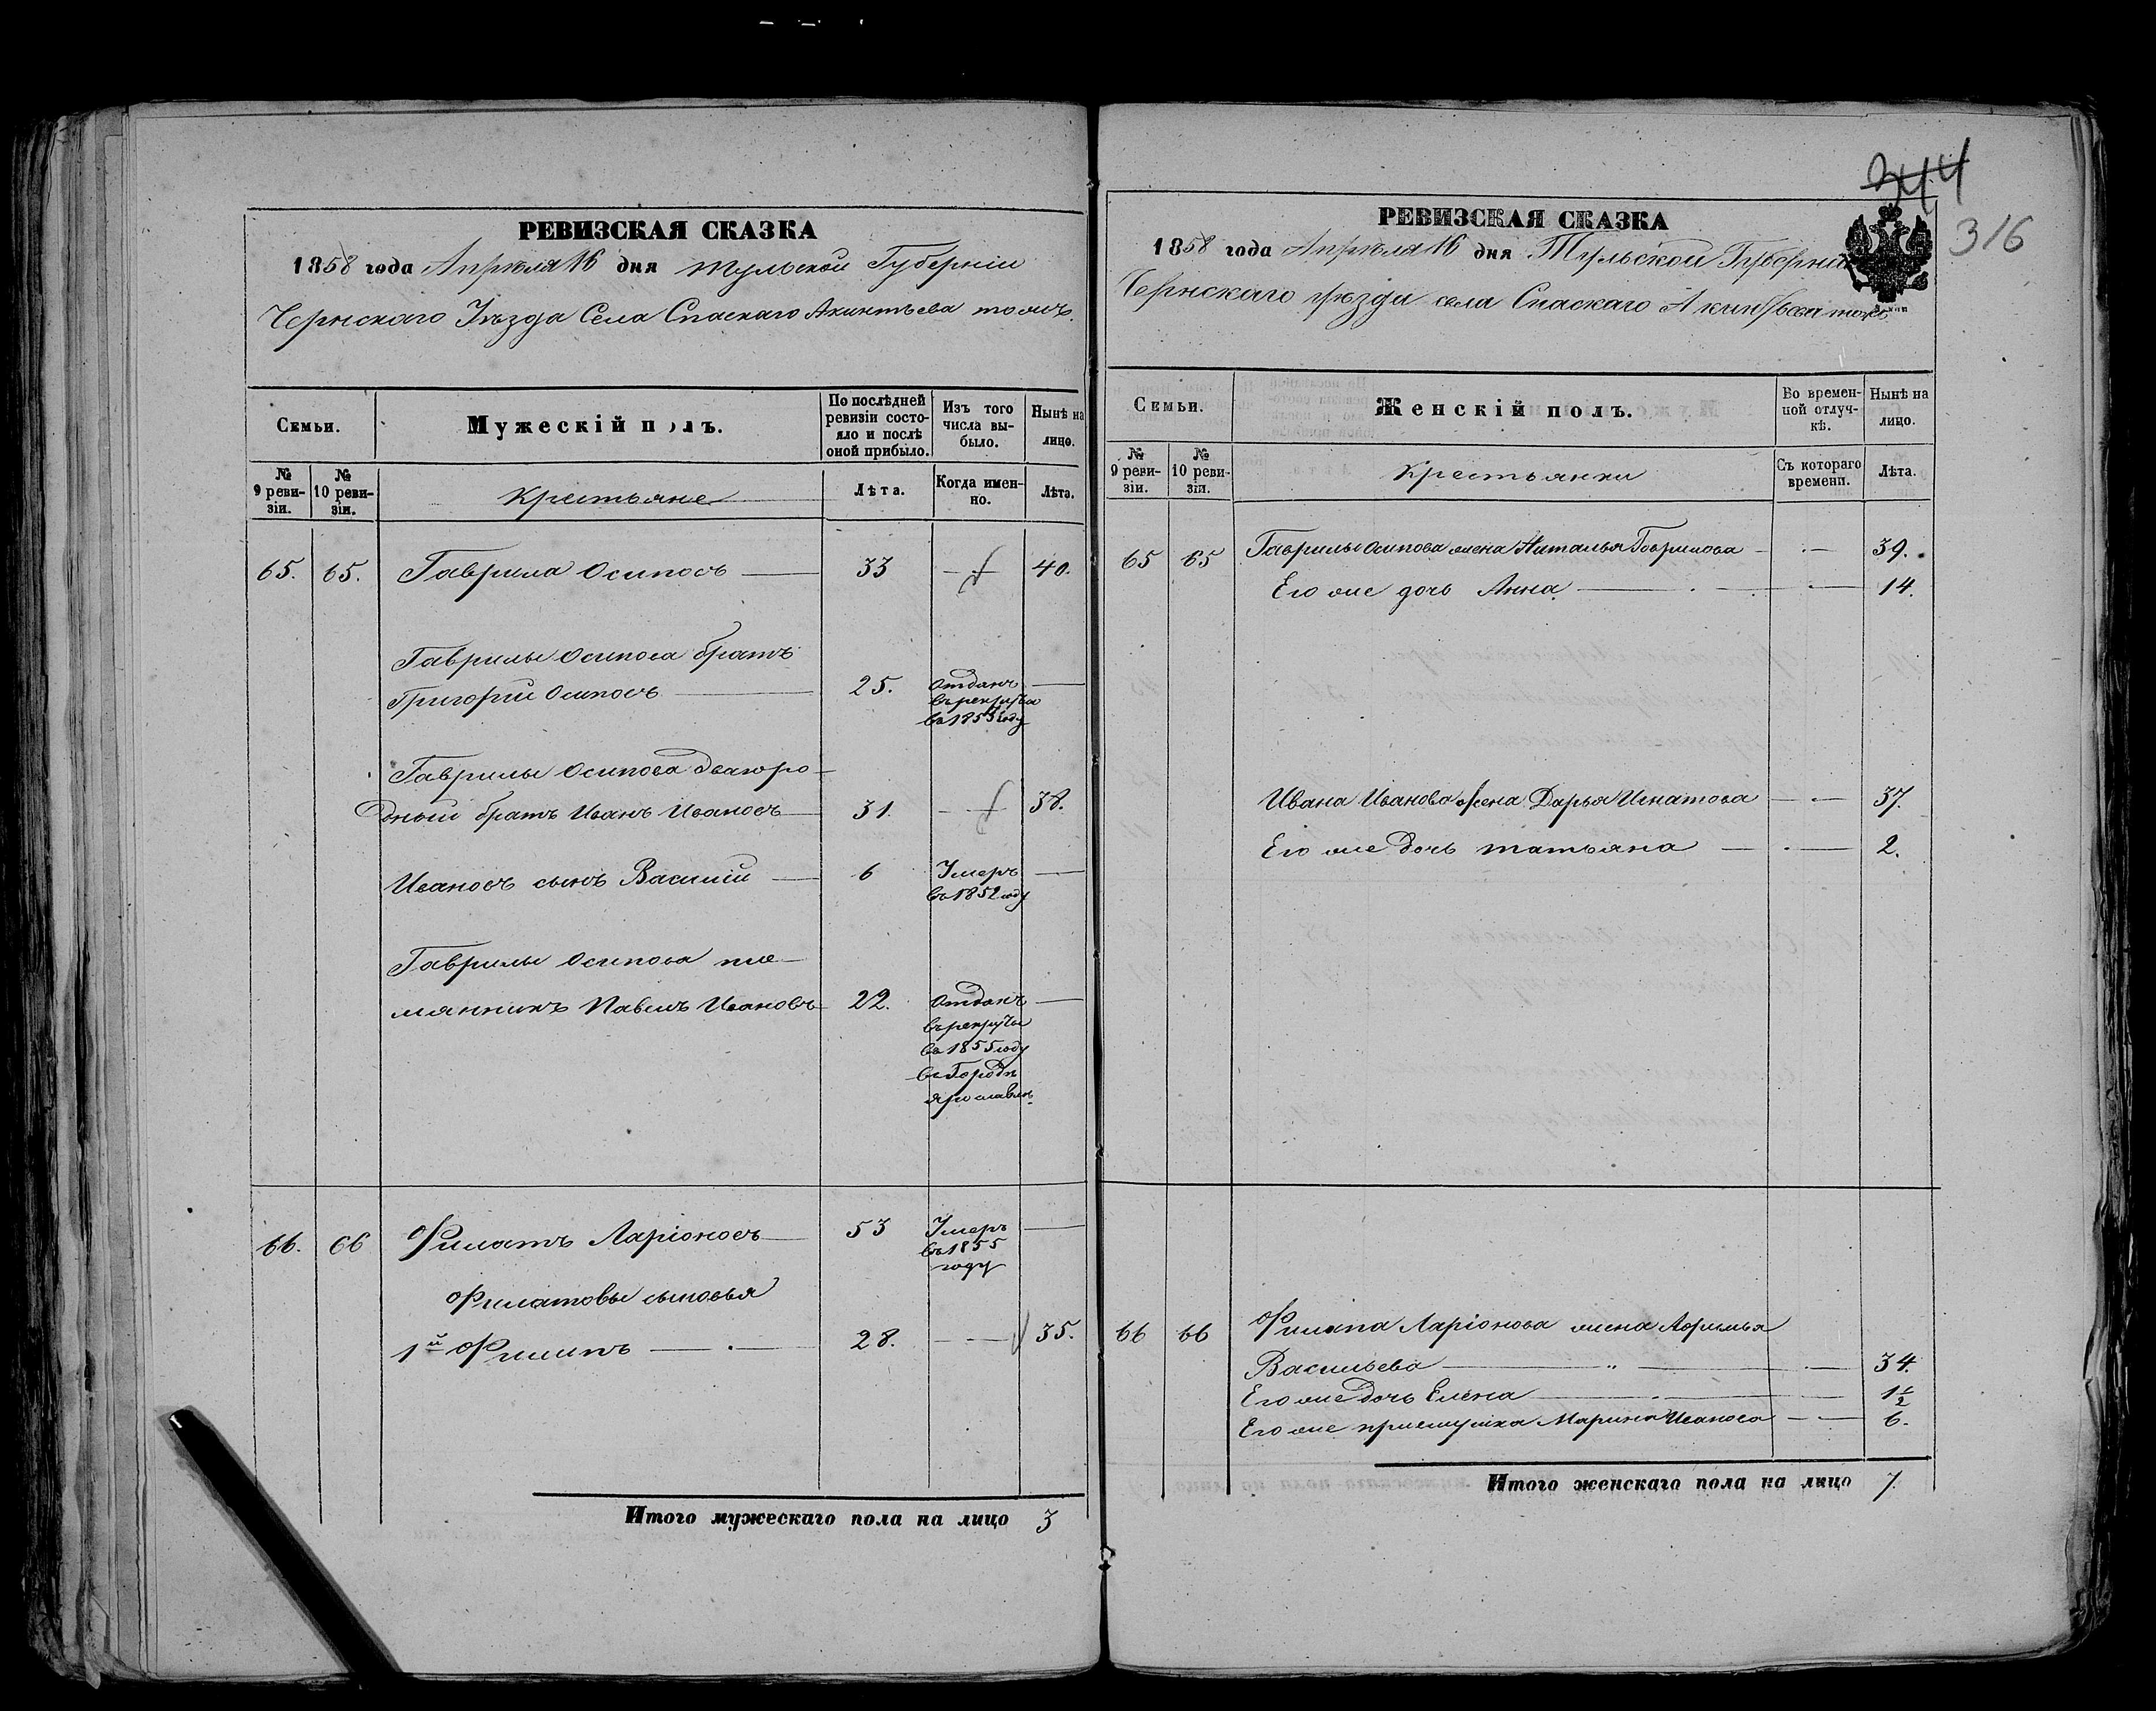 РЕВИЗСКАЯ СКАЗКА
1858 года Апреля 16 дня Тульской Губернiи
Чернскаго Уѣзда Села Спаскаго Акинтьева тожъ.
Семьи.
Мужескiй полъ.
По послѣдней ревизiи состояло и послѣ оной прибыло.
Изъ того числа выбыло.
Нынѣ на лицо.
№ 9 ревизiи.
№ 10 ревизiи.
Крестьяне
Лѣта.
Когда именно.
Лѣта.
65. 65. Гаврила Осиповъ 33 40.
Гаврилы Осипова братъ
Григорiй Осиповъ 25. Отданъ
въ рекруты
въ 1853 году
Гаврилы Осипова двоюро-
дный братъ Иванъ Ивановъ 31. 38.
Ивановъ сынъ Василiй 6 Умеръ
въ 1852 году
Гаврилы Осипова пле-
мянникъ Павелъ Ивановъ 22. Отданъ
въ рекруты
въ 1855 году
въ Городѣ
Ярославлѣ
66. 66 Филатъ Ларiоновъ 53 Умеръ
въ 1855
году
Филатовы сыновья
1й Филипъ 28. 35.
Итого мужескаго пола на лицо 3
244
316
РЕВИЗСКАЯ СКАЗКА
1858 года Апрѣля 16 дня Тульской Губернiи
Чернскаго уѣзда села Спаскаго тожъ
Семьи.
Женскiй полъ.
Во временной отлучкѣ.
Нынѣ на лицо.
№ 9 ревизiи.
№ 10 ревизiи.
Крестьянки
Съ котораго времени.
Лѣта.
65 65 Гаврилы Осипова жена Наталья Гаврилова 39.
Его же дочь Анна 14.
Ивана Иванова жена Дарья Игнатова 37.
Его же дочь татьяна 2.
66 66 Филипа Ларiонова жена Афимья
Васильева 34.
Его же дочь Елена 1 1/2
Его же приемушка Марина Иванова 6.
Итого женскаго пола на лицо 7.